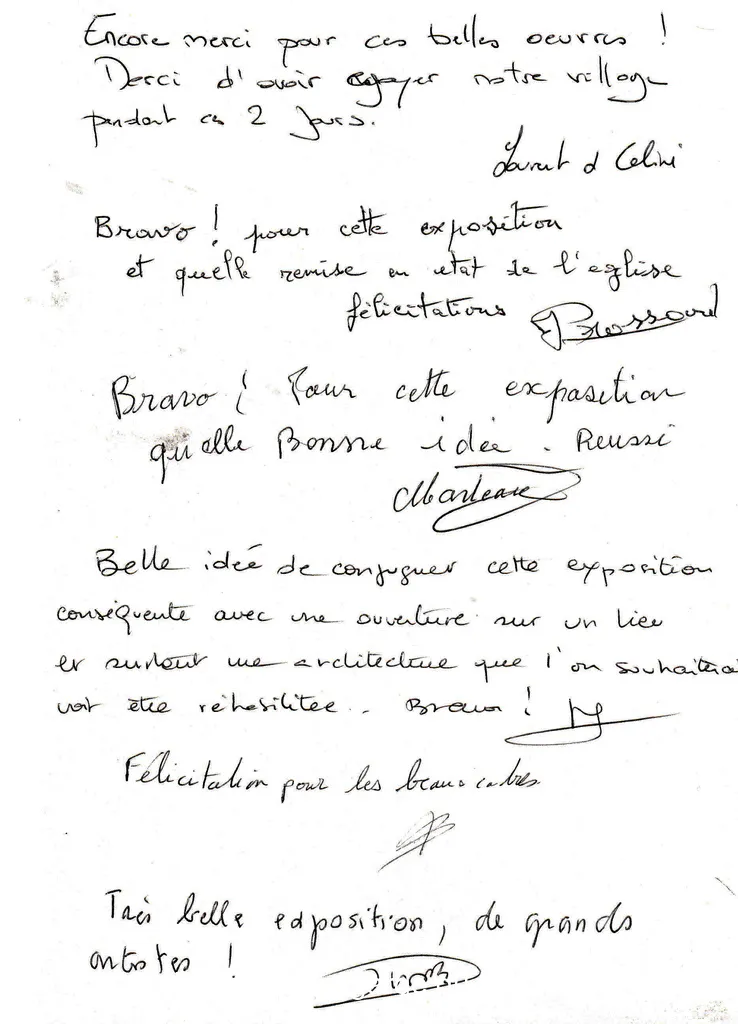 Encore merci pour ces belles oeuvres !
Merci d'avoir egayer notre village
pendant ces 2 jours.
Laurent et Celine
Bravo ! pour cette exposition
et quelle remise en etat de l'eglise
félicitations Brossard
Bravo ! Pour cette exposition
quelle Bonne idée. Reussi
Marteau
Belle idée de conjuguer cette exposition
conséquente avec une ouverture sur un lieu
et surtout une architecture que l'on souhaiterai
voir être réhabilitée. Bravo !
Félicitation pour les beaux cadres
Très belle exposition, de grands
artistes !